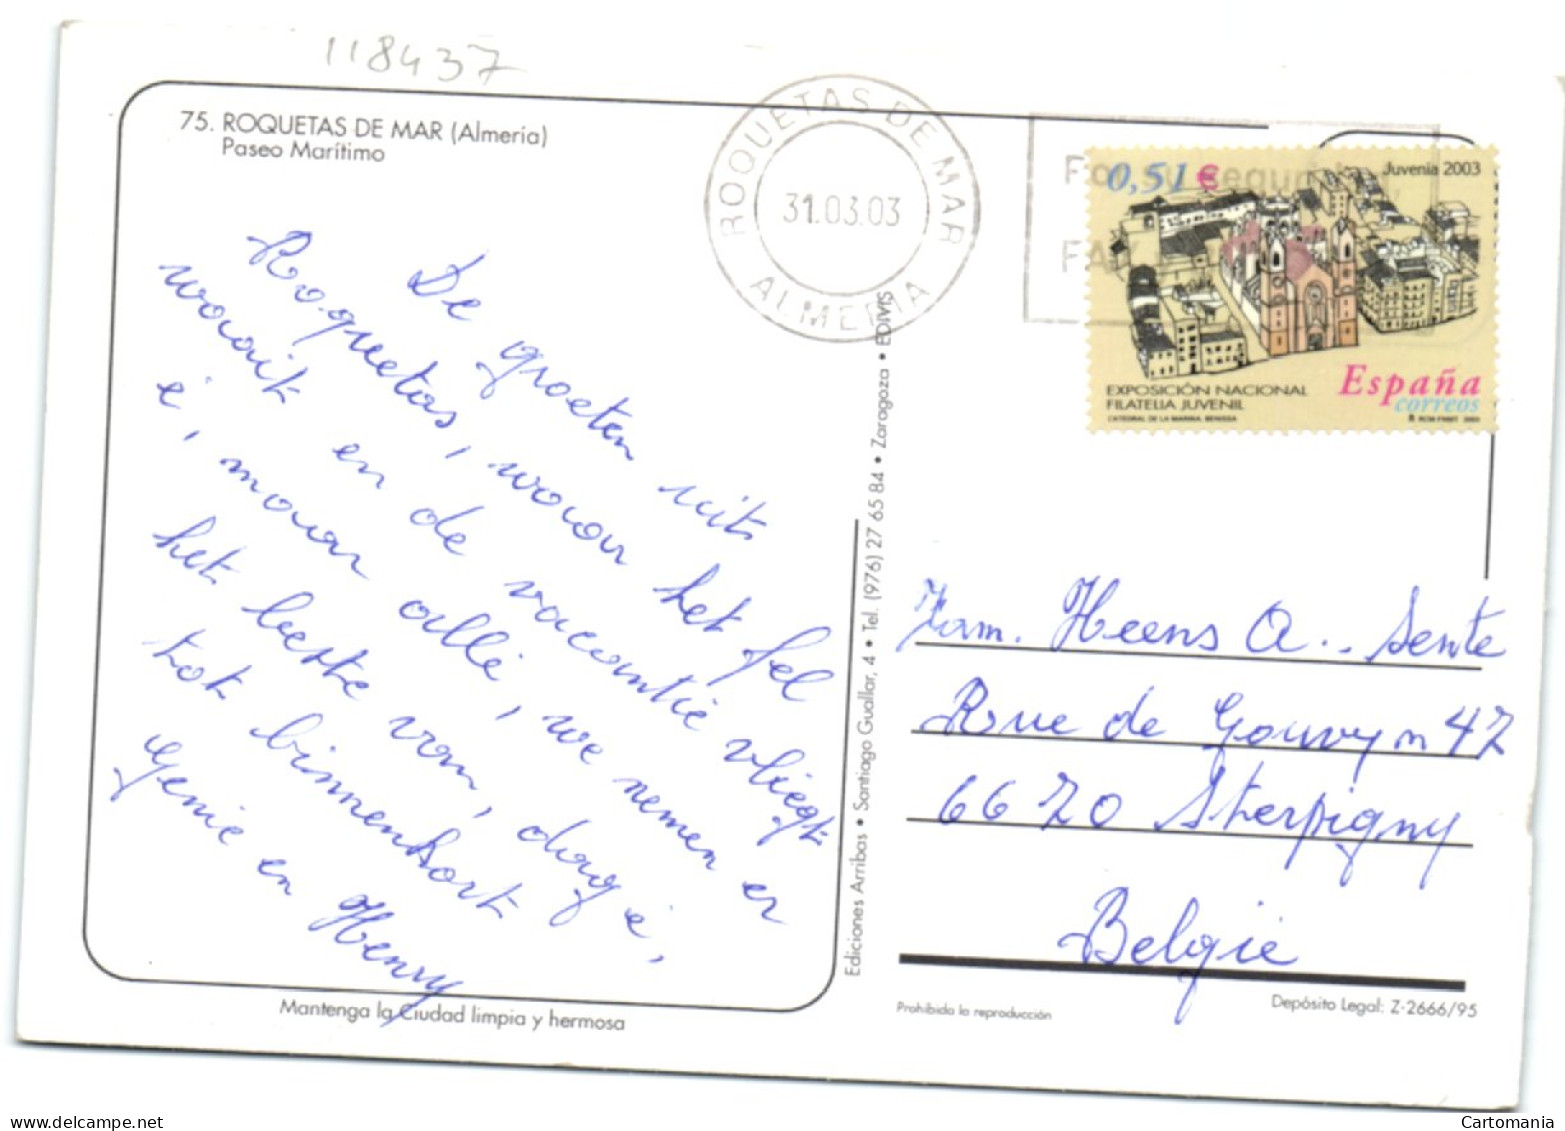 118437
75. ROQUETAS DE MAR (Almería)
Paseo Marítimo
ROQUETAS DE MAR
31.03.03
ALMERIA
0,51 €
Juvenia 2003
EXPOSICIÓN NACIONAL
FILATELIA JUVENIL
CATEDRAL DE LA MARINA. BENISSA
España
correos
RCM-FNMT 2003
De groeten uit
Roquetas, waar het fel
waait en de vacantie vliegt
é, maar allé, we nemen er
het beste van, dag é,
tot binnenkort
Genie en Henry
Mantenga la Ciudad limpia y hermosa
Ediciones Arribas • Santiago Guallar, 4 • Tel. (976) 27 65 84 • Zaragoza • EDIVIS
Fam. Heens A.. Sente
Rue de Gouvy n 47
6670 Sterpigny
Belgie
Prohibida la reproducción
Depósito Legal: Z-2666/95
Cartomania
www.delcampe.net